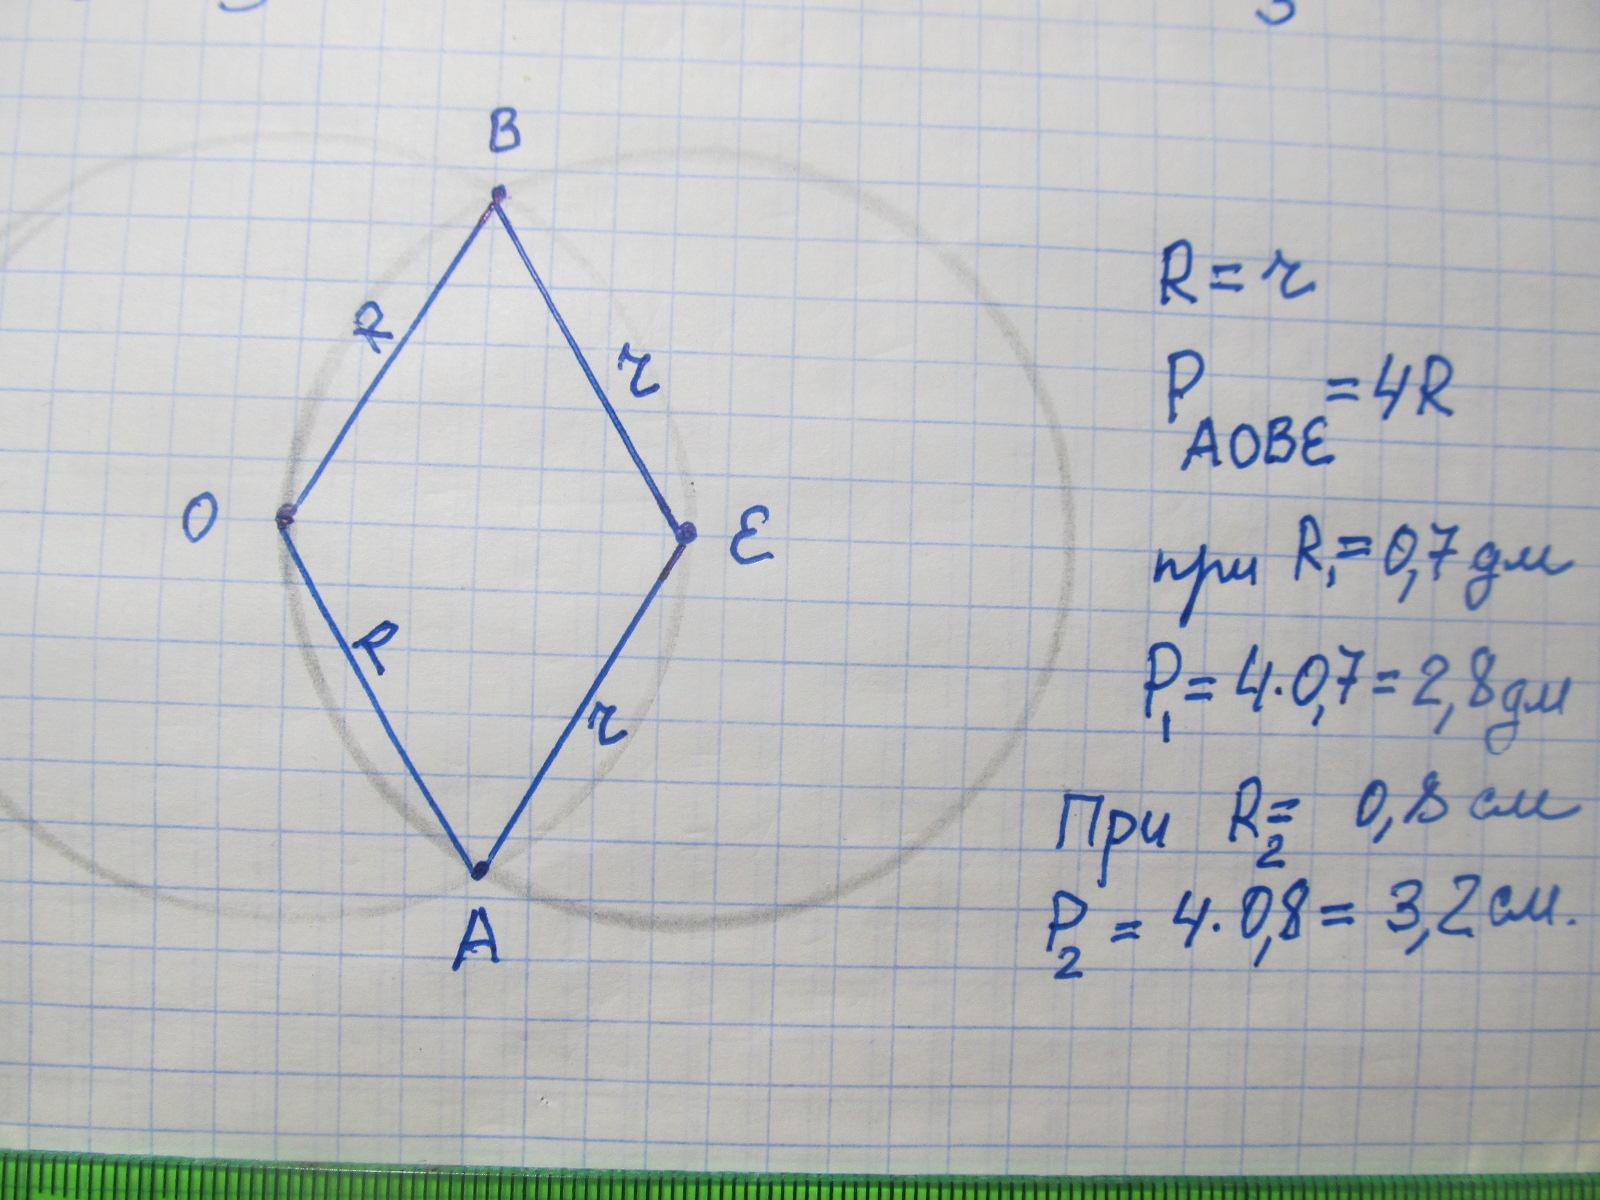 B
R
r
O
E
R
r
A
R = r
P AOBE = 4R
при R₁ = 0,7 дм
P₁ = 4·0,7 = 2,8 дм
При R₂ = 0,8 см
P₂ = 4·0,8 = 3,2 см.